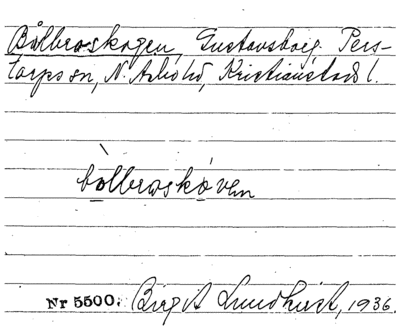 Bålbroskogen, Gustavsborg. Pers-
torps sn, N. Åsbo hd, Kristianstads l.
bòlbroskóven
Nr 5500. Birgit Lundkvist, 1936.